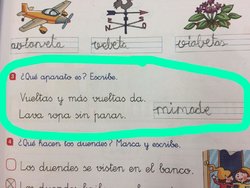 avioneta veleta violetas
3 ¿Qué aparato es? Escribe.
Vueltas y más vueltas da.
Lava ropa sin parar.
mimade
4 ¿Qué hacen los duendes? Marca y escribe.
Los duendes se visten en el banco.
Los duendes